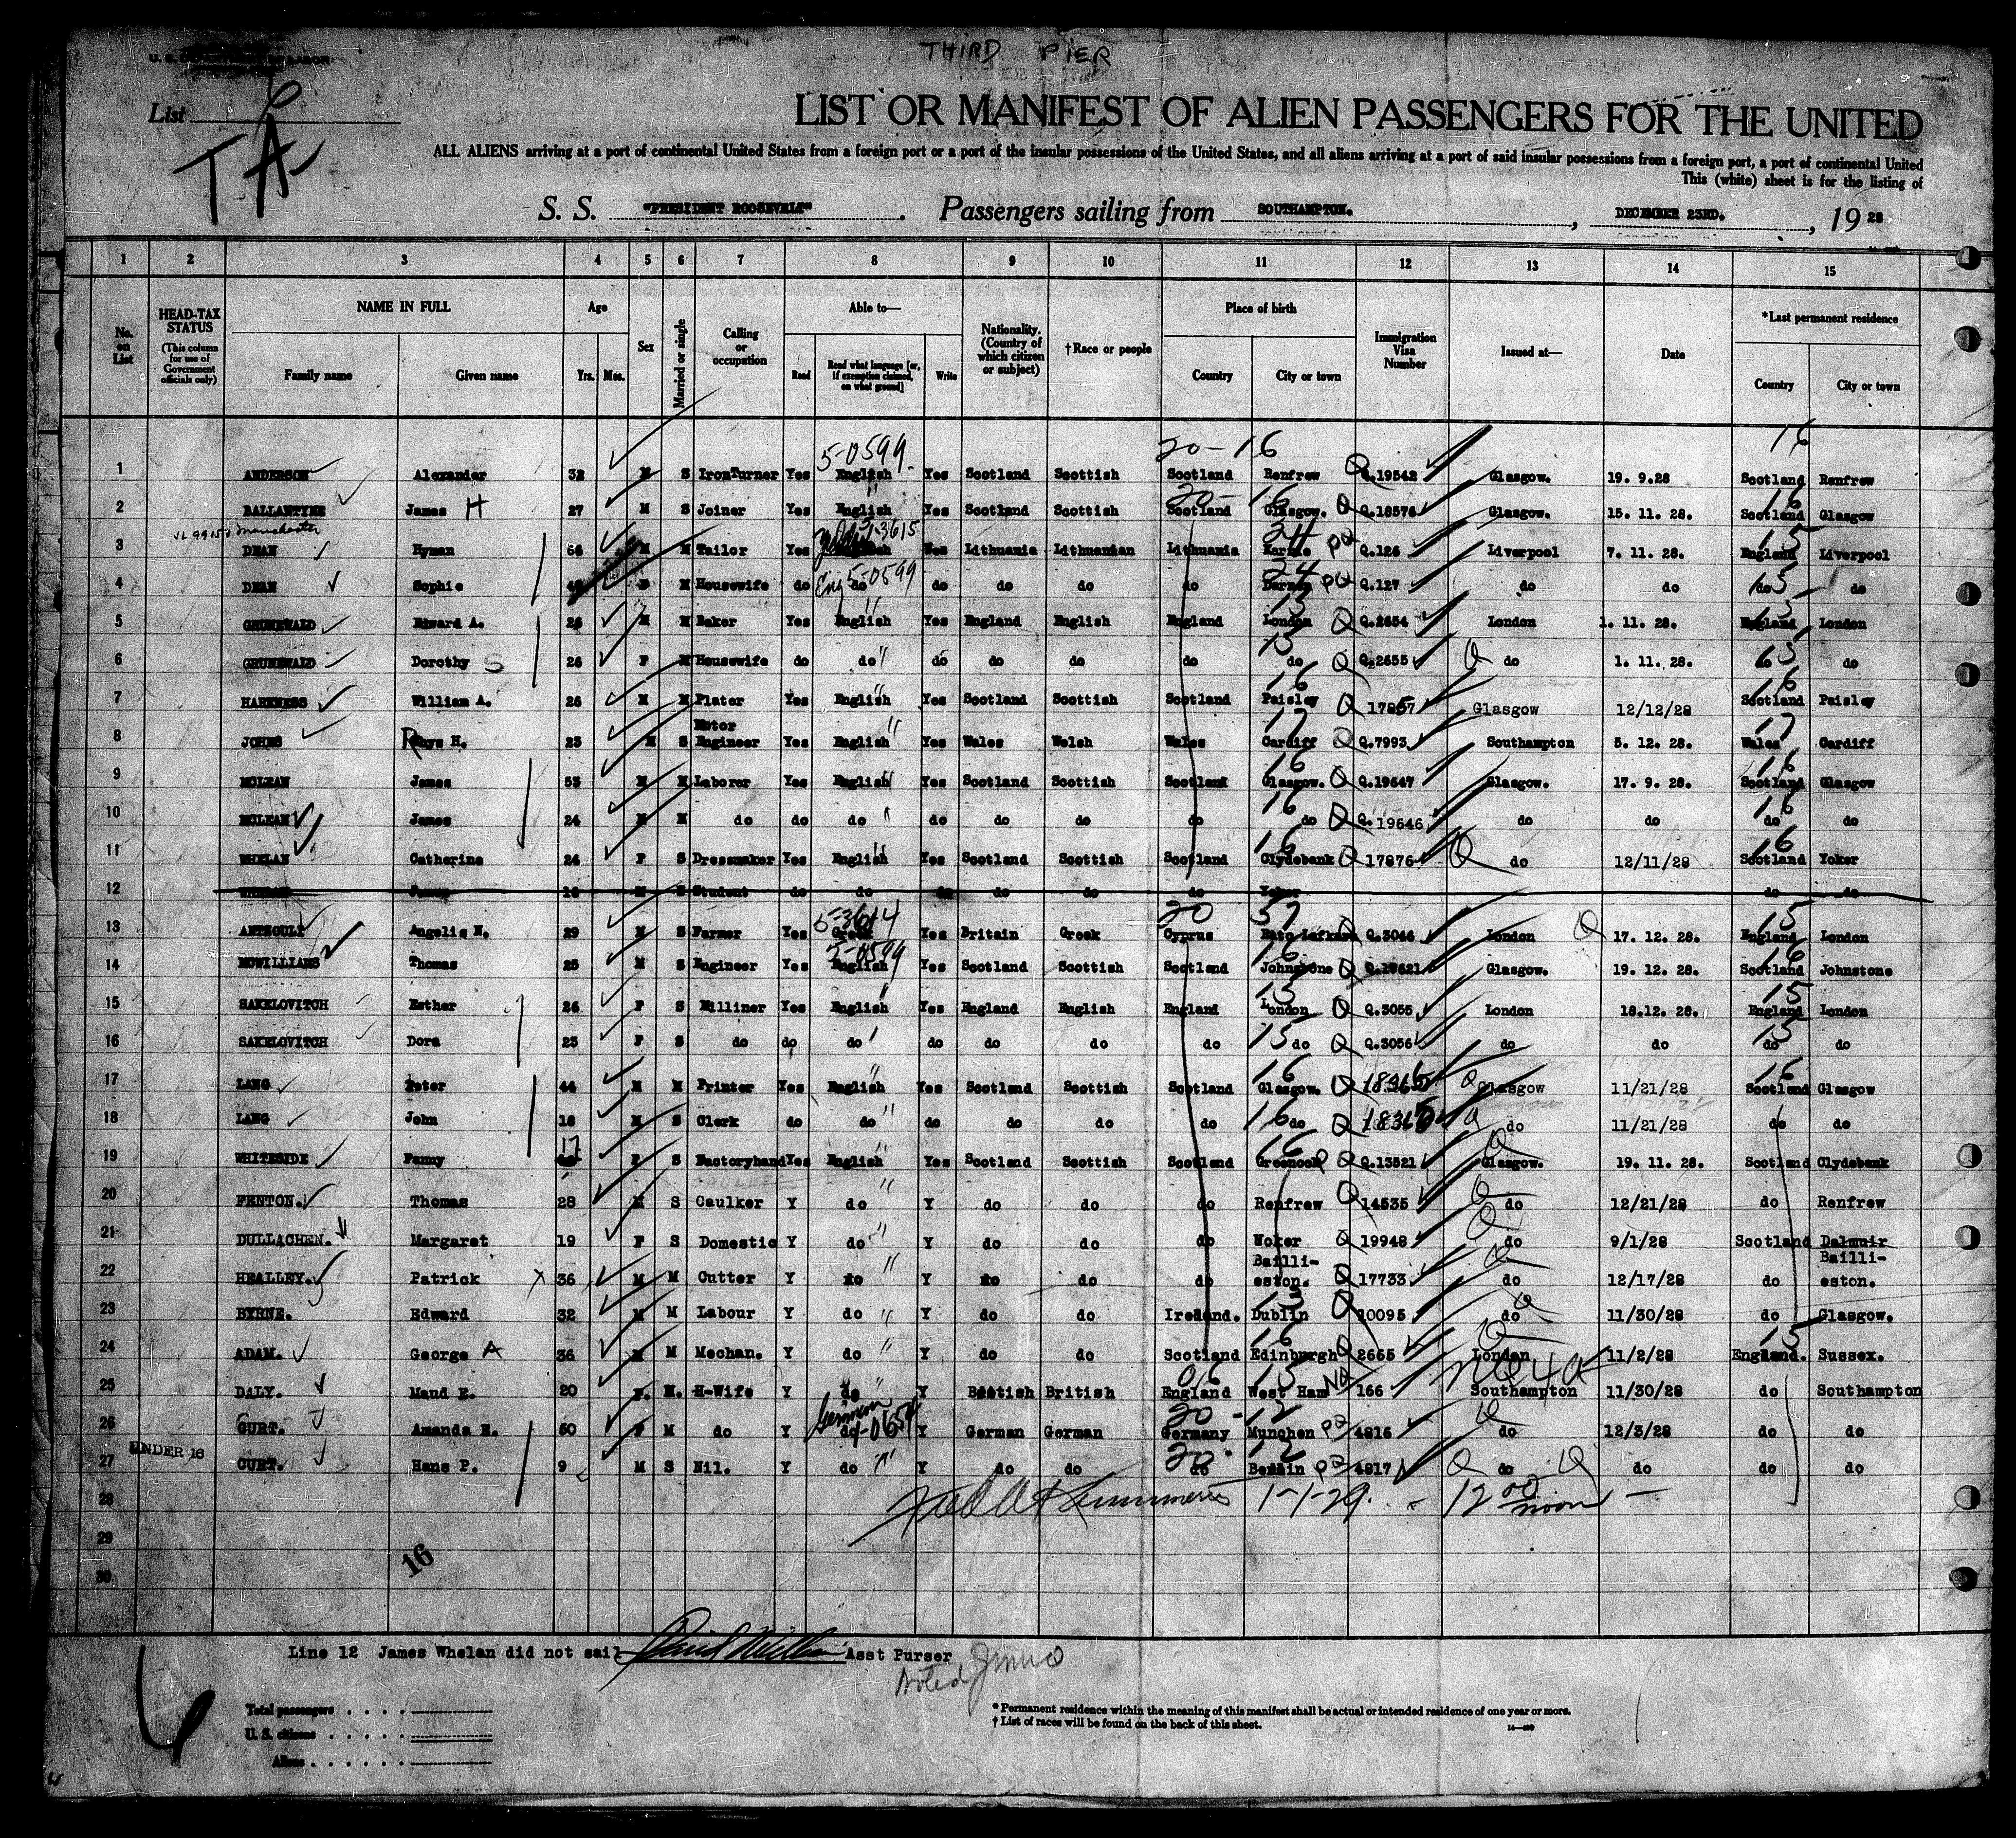 THIRD PIER
List 6
TA
LIST OR MANIFEST OF ALIEN PASSENGERS FOR THE UNITED
ALL ALIENS arriving at a port of continental United States from a foreign port or a port of the insular possessions of the United States, and all aliens arriving at a port of said insular possessions from a foreign port, a port of continental United
This (white) sheet is for the listing of
S. S. "PRESIDENT ROOSEVELT". Passengers sailing from SOUTHAMPTON. , DECEMBER 23RD. , 19 28
1 2 3 4 5 6 7 8 9 10 11 12 13 14 15
No. on List
HEAD-TAX STATUS
(This column for use of Government officials only)
NAME IN FULL
Family name Given name
Age
Yrs. Mos.
Sex
Married or single
Calling or occupation
Able to—
Read
Read what language [or, if exemption claimed, on what ground]
Write
Nationality. (Country of which citizen or subject)
†Race or people
Place of birth
Country City or town
Immigration Visa Number
Issued at—
Date
*Last permanent residence
Country City or town
5-0599. 20-16 16
1 ANDERSON Alexander 32 M S IronTurner Yes English Yes Scotland Scottish Scotland Renfrew Q.19542 Glasgow. 19. 9.28 Scotland Renfrew
2 BALLANTYNE James H 27 M S Joiner Yes English Yes Scotland Scottish Scotland Glasgow. Q.18576 Glasgow. 15. 11. 28. Scotland Glasgow
3 DEAN Hyman M M Tailor Yes Yes Lithuania Lithuanian Lithuania Q.126 Liverpool 7. 11. 28. England Liverpool
4 DEAN Sophie F M Housewife do Eng 5-0599 do do do do Q.127 do do do do
5 GRUNEWALD Edward A. 26 M M Baker Yes English Yes England English England London Q.2654 London 1. 11. 28. England London
6 GRUNEWALD Dorothy S 26 F M Housewife do do do do do do do Q.2655 do 1. 11. 28. do
7 HARKNESS William A. 26 M M Plater Yes English Yes Scotland Scottish Scotland Paisley 17857 Glasgow 12/12/28 Scotland Paisley
8 JOHNS Rhys H. 23 M S Motor Engineer Yes English Yes Wales Welsh Wales Cardiff Q.7993 Southampton 5. 12. 28. Wales Cardiff
9 MCLEAN James 53 M M Laborer Yes English Yes Scotland Scottish Scotland Glasgow. Q.19647 Glasgow. 17. 9. 28. Scotland Glasgow
10 MCLEAN James 24 M M do do do do do do do do Q.19646 do do do do
11 WHELAN Catherine 24 F S Dressmaker Yes English Yes Scotland Scottish Scotland Clydebank 17876 do 12/11/28 Scotland Yoker
12 WHELAN James M S Student do do do do do do Yoker do do
13 Angelis N. 29 M S Farmer Yes Greek Yes Britain Greek Cyprus Q.3046 London 17. 12. 28. England London
14 MCWILLIAMS Thomas 25 M S Engineer Yes English Yes Scotland Scottish Scotland Johnstone Q.19621 Glasgow. 19. 12. 28. Scotland Johnstone
15 SAKELOVITCH Esther 26 F S Milliner Yes English Yes England English England London Q.3055 London 18.12. 28. England London
16 SAKELOVITCH Dora 23 F S do do do do do do do do Q.3056 do do do do
17 LANG Peter 44 M M Printer Yes English Yes Scotland Scottish Scotland Glasgow. Glasgow 11/21/28 Scotland Glasgow
18 LANG John 18 M S Clerk do do do do do do do 18365 do 11/21/28 do do
19 WHITESIDE Fanny 17 F S Factoryhand Yes English Yes Scotland Scottish Scotland Greenock Q.13521 Glasgow. 19. 11. 28. Scotland Clydebank
20 FENTON. Thomas 28 M S Caulker Y do Y do do do Renfrew 14535 do 12/21/28 do Renfrew
21 DULLACHEN. Margaret 19 F S Domestic Y do Y do do do Woker 19948 do 9/1/28 Scotland Dalmuir
22 HEALLEY. Patrick 36 M M Cutter Y do Y do do do Bailli-eston. 17733 do 12/17/28 do Bailli-eston.
23 BYRNE. Edward 32 M M Labour Y do Y do do Ireland. Dublin 10095 do 11/30/28 do Glasgow.
24 ADAM. George A 36 M M Mechan. Y do Y do do Scotland Edinburgh 2665 London 11/2/28 England. Sussex.
25 DALY. Maud E. 20 F. M. H-Wife Y do Y British British England West Ham 166 Southampton 11/30/28 do Southampton
26 CURT. Amanda E. 50 F M do Y German Y German German Germany Munchen 4816 do 12/3/28 do do
UNDER 16
27 CURT. Hans P. 9 M S Nil. Y do Y do do do Berlin 4817 do do do do
28 1-1-29. 12 00 noon
29
30
16
Line 12 James Whelan did not sail Asst Purser
Noted
Total passengers
U. S. citizens
Aliens
* Permanent residence within the meaning of this manifest shall be actual or intended residence of one year or more.
† List of races will be found on the back of this sheet.